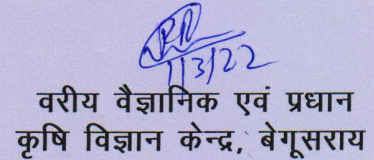 1/3/22
वरीय वैज्ञानिक एवं प्रधान
कृषि विज्ञान केन्द्र, बेगूसराय